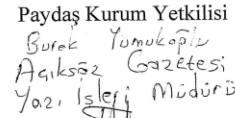 Paydaş Kurum Yetkilisi
Burak Yumukoğlu
Açıksöz Gazetesi
Yazı İşleri Müdürü